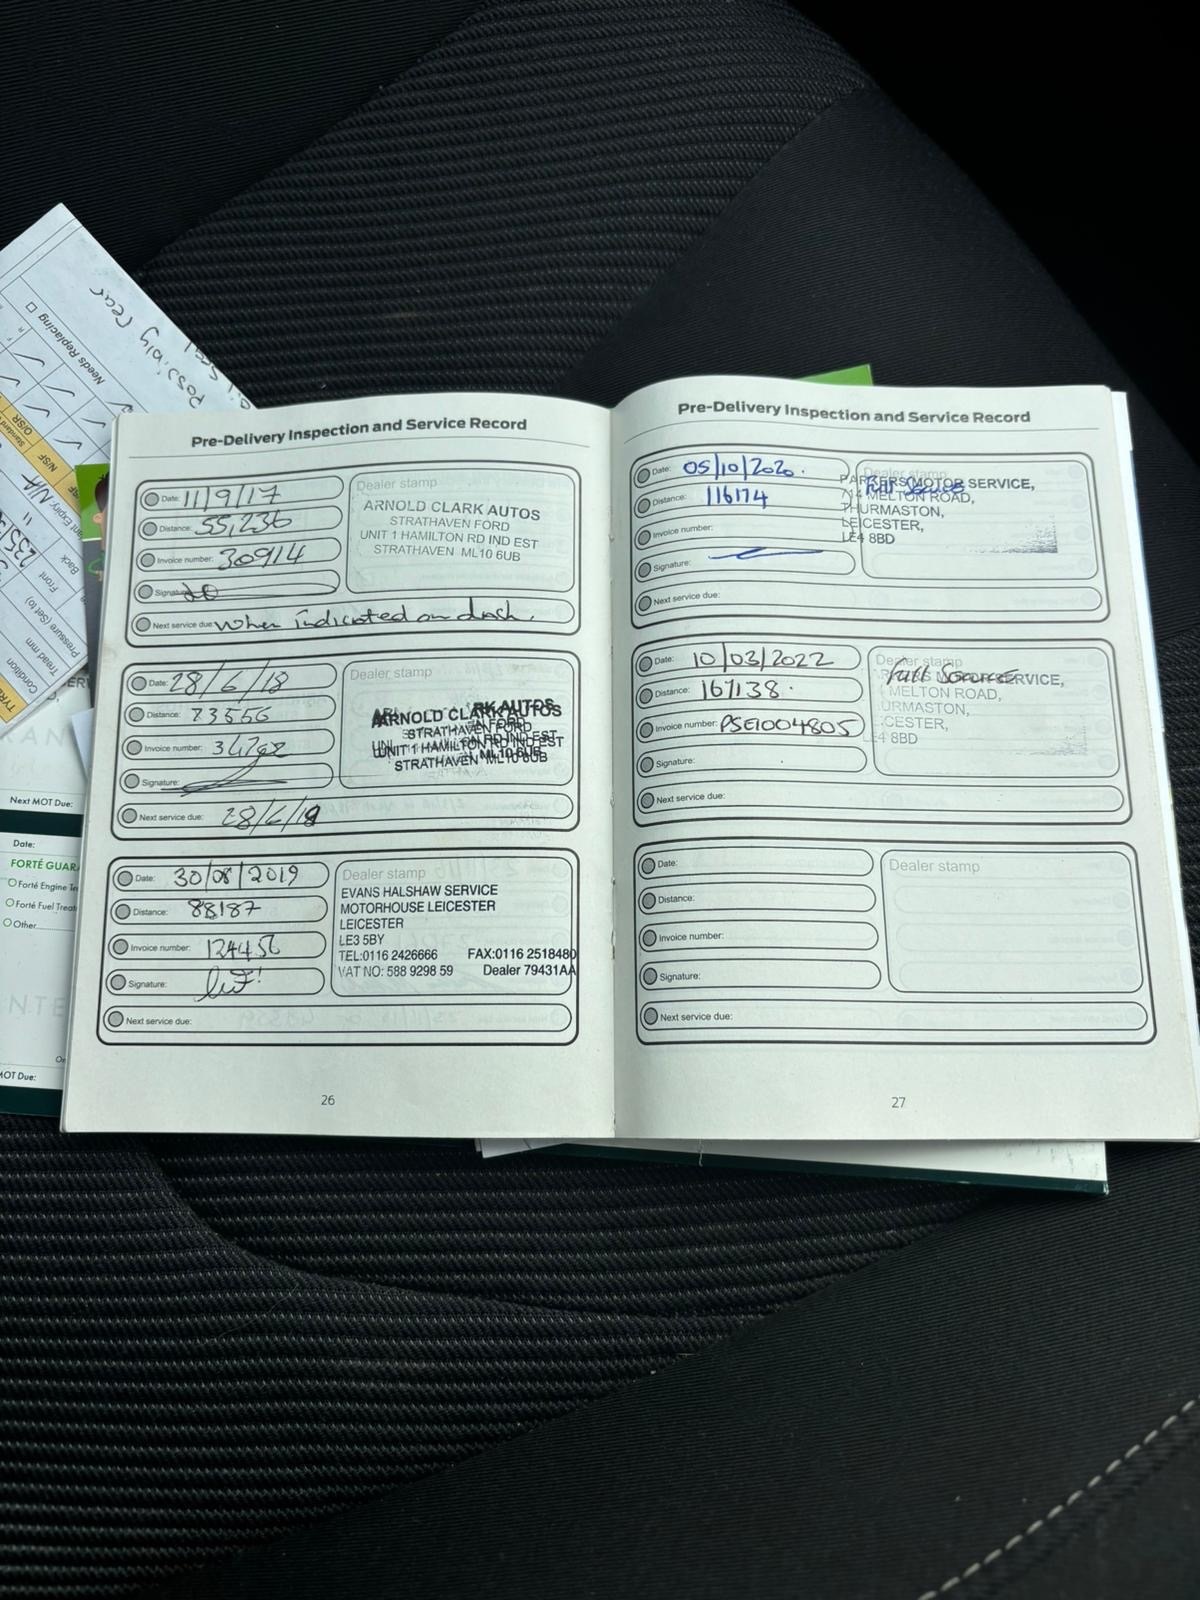 Possibly rear
Needs Replacing
O/SR
N/SF
N/A
Back
Front
Pressure (Set to)
Tread mm
Condition
TYRE
Next MOT Due:
Date:
FORTÉ GUAR
Forté Engine Tre
Forté Fuel Treat
Other
MOT Due:
Pre-Delivery Inspection and Service Record
Date: 11/9/17
Distance: 55,236
Invoice number: 30914
Signature:
Next service due: When indicated on dash.
Dealer stamp
ARNOLD CLARK AUTOS
STRATHAVEN FORD
UNIT 1 HAMILTON RD IND EST
STRATHAVEN ML10 6UB
Date: 28/6/18
Distance: 73556
Invoice number:
Signature:
Next service due: 28/6/19
Dealer stamp
ARNOLD CLARK AUTOS
STRATHAVEN FORD
UNIT 1 HAMILTON RD IND EST
STRATHAVEN ML10 6UB
Date: 30/08/2019
Distance: 88187
Invoice number: 124456
Signature:
Next service due:
Dealer stamp
EVANS HALSHAW SERVICE
MOTORHOUSE LEICESTER
LEICESTER
LE3 5BY
TEL:0116 2426666 FAX:0116 2518480
VAT NO: 588 9298 59 Dealer 79431AA
26
Pre-Delivery Inspection and Service Record
Date: 05/10/2020.
Distance: 116174
Invoice number:
Signature:
Next service due:
Dealer stamp
Full Service
PARKERS MOTOR SERVICE,
714 MELTON ROAD,
THURMASTON,
LEICESTER,
LE4 8BD
Date: 10/03/2022
Distance: 167138.
Invoice number: PSE1004805
Signature:
Next service due:
Dealer stamp
Full Service
SERVICE,
MELTON ROAD,
URMASTON,
CESTER,
LE4 8BD
Date:
Distance:
Invoice number:
Signature:
Next service due:
Dealer stamp
27